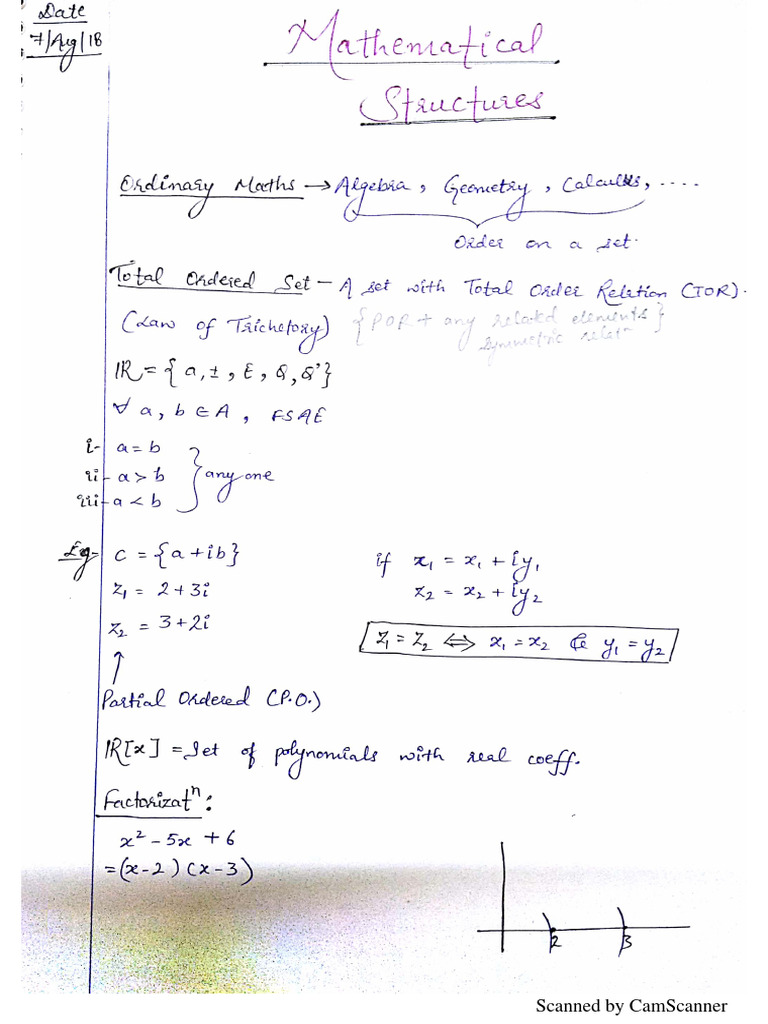 Date
7/Aug/18
Mathematical
Structures
Ordinary Maths → Algebra, Geometry, Calculus, ....
Order on a set.
Total Ordered Set - A set with Total Order Relation (TOR).
(Law of Trichotomy) {POR + any related elements}
symmetric relatⁿ
ℝ = {a, ±, E, Q, Q'}
∀ a, b ∈ A, FSAE
i- a = b
ii- a > b } any one
iii- a < b
Eg- C = {a + ib}
if z₁ = x₁ + iy₁
z₁ = 2 + 3i
z₂ = x₂ + iy₂
z₂ = 3 + 2i
z₁ = z₂ ⟺ x₁ = x₂ & y₁ = y₂
↑
Partial Ordered (P.O.)
ℝ[x] = Set of polynomials with real coeff.
Factorizatⁿ:
x² - 5x + 6
= (x - 2) (x - 3)
2 3
Scanned by CamScanner